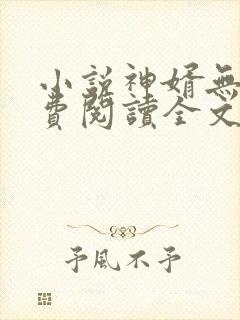 小説神婿無
費閱讀全文
予風不予